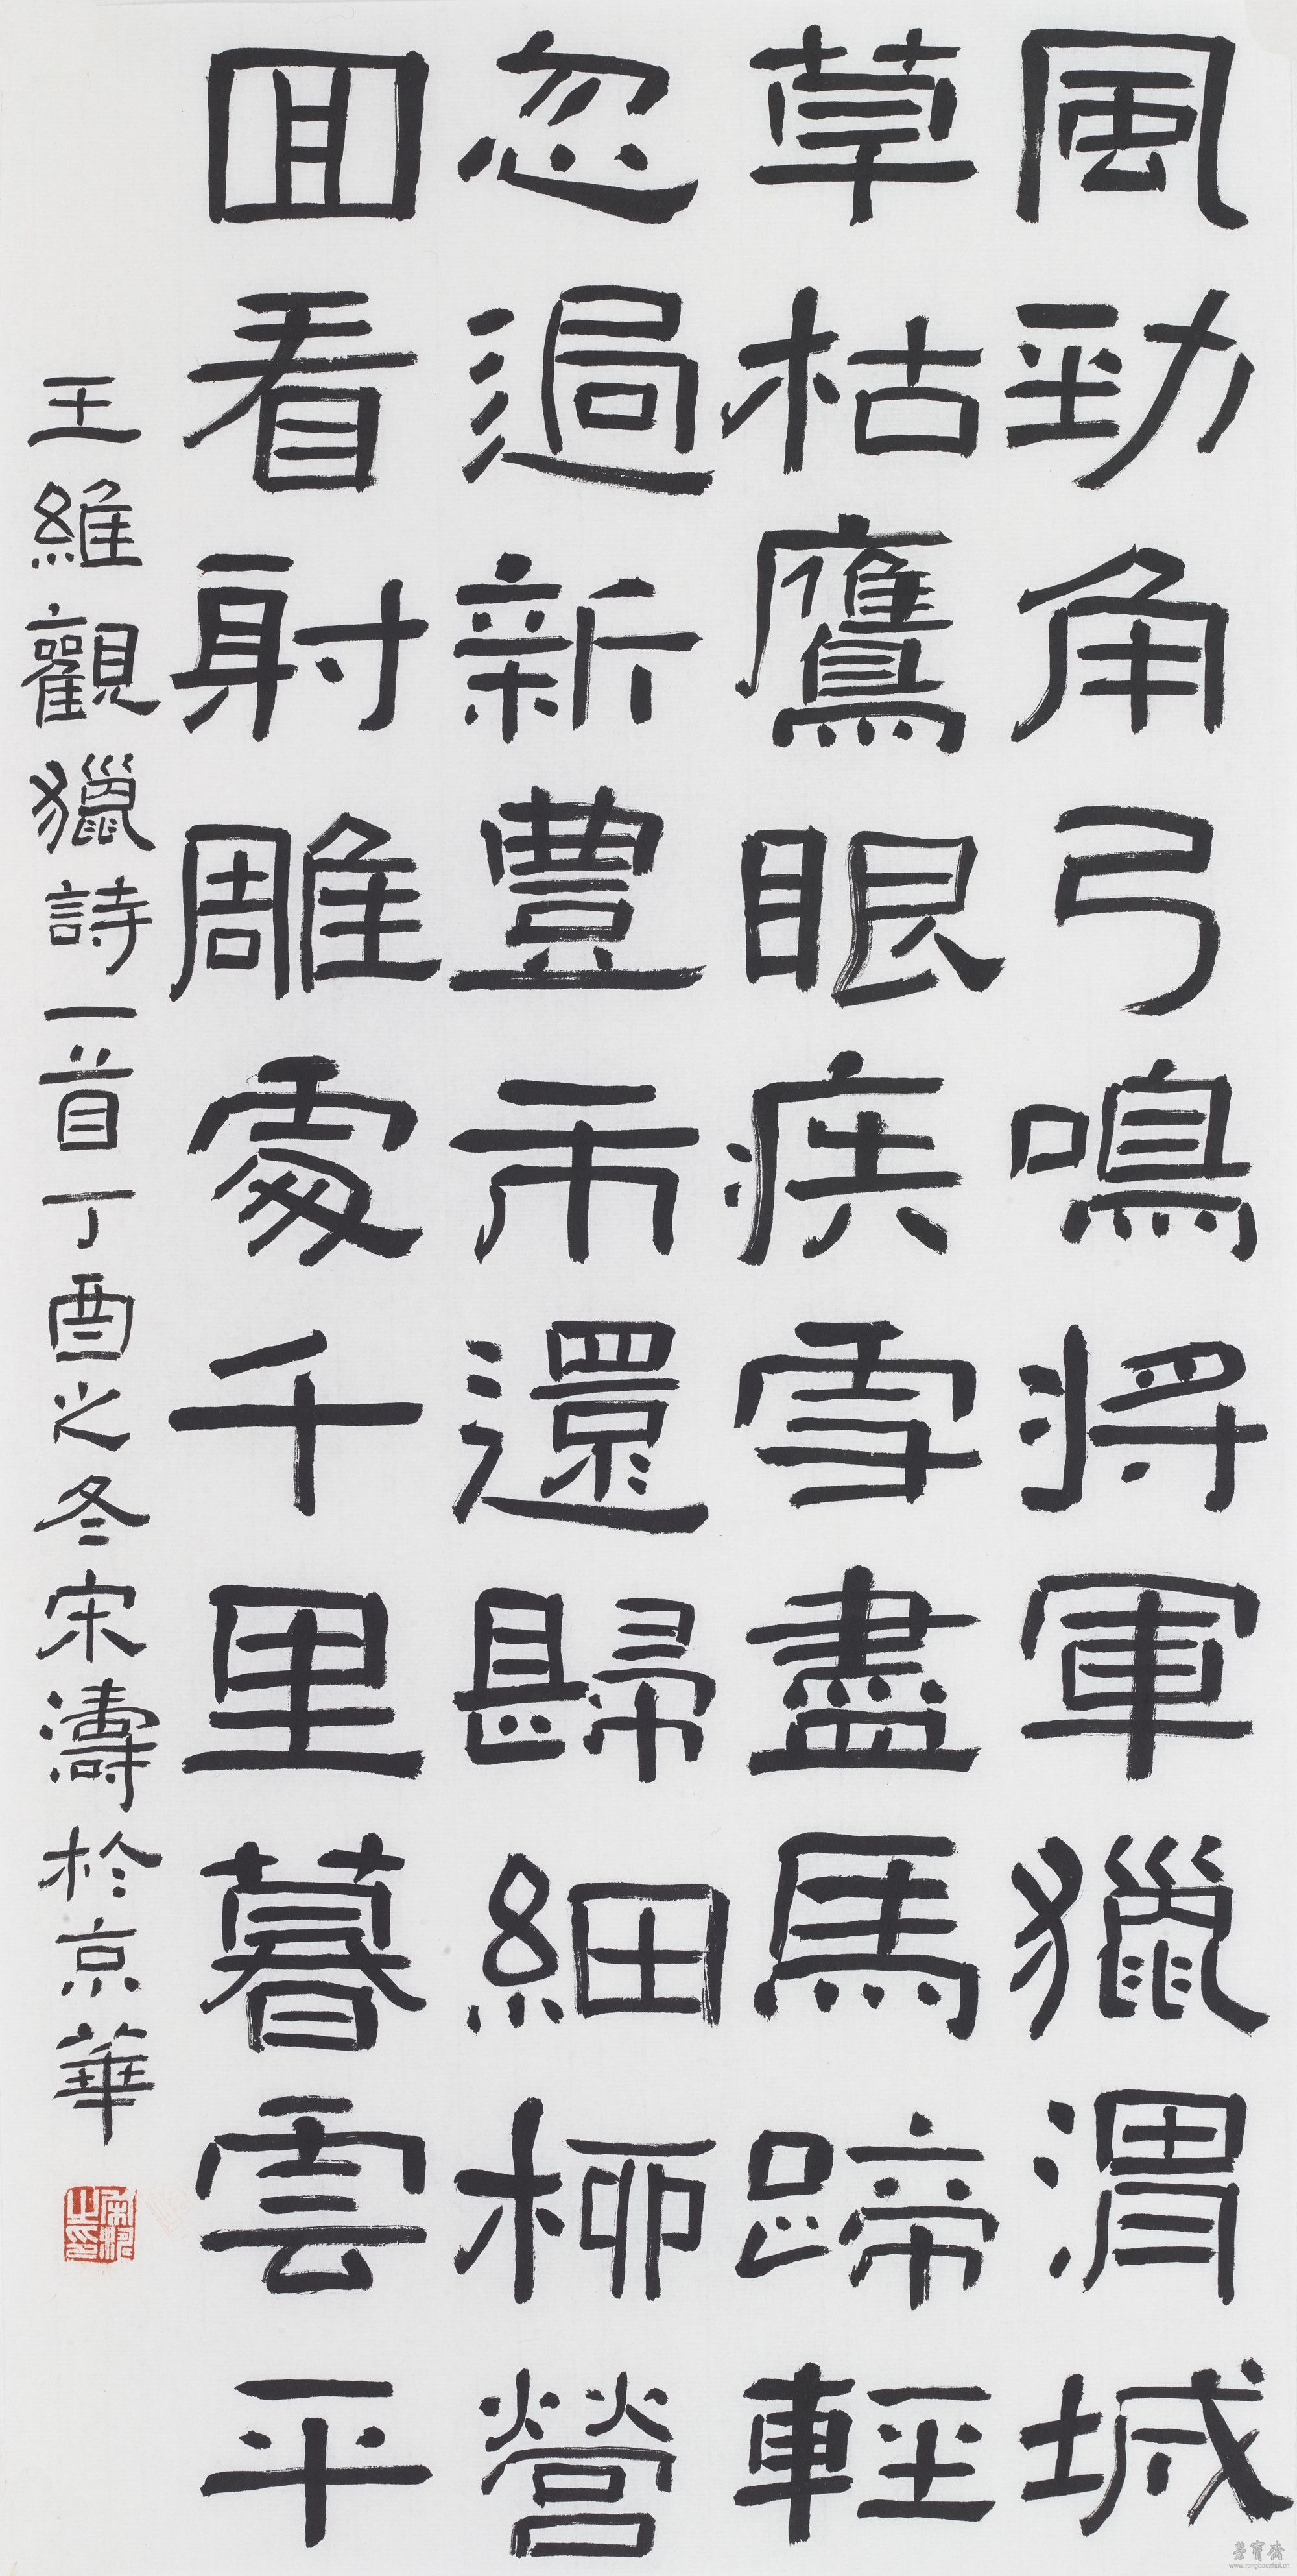 風勁角弓鳴將軍獵渭城
草枯鷹眼疾雪盡馬蹄輕
忽過新豐市還歸細柳營
回看射雕處千里暮雲平
王維觀獵詩一首丁酉之冬宋濤於京華
榮寶齋
www.rongbaozhai.cn